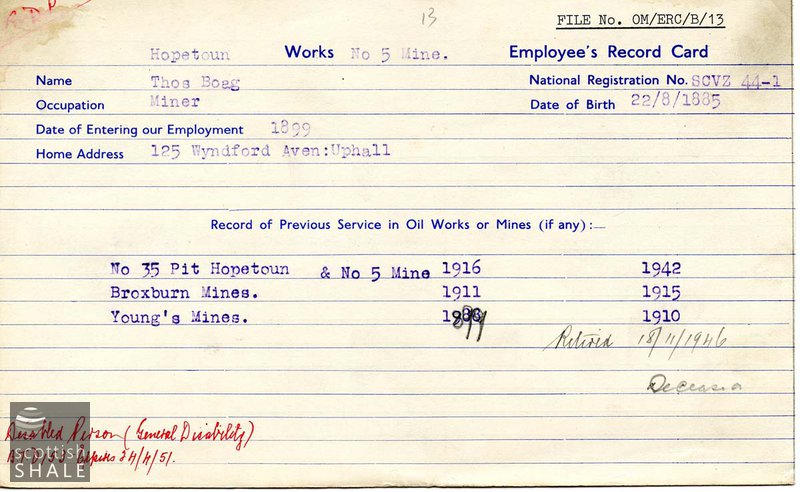 R.D.P
13
FILE No. OM/ERC/B/13
Hopetoun Works No 5 Mine. Employee's Record Card
Name Thos Boag National Registration No. SCVZ 44-1
Occupation Miner Date of Birth 22/8/1885
Date of Entering our Employment 1899
Home Address 125 Wyndford Aven:Uphall
Record of Previous Service in Oil Works or Mines (if any):—
No 35 Pit Hopetoun & No 5 Mine 1916 1942
Broxburn Mines. 1911 1915
Young's Mines. 1899 1910
Retired 18/11/1946
Deceased
Disabled Person (General Disability)
Expires 24/4/51.
scottish
SHALE